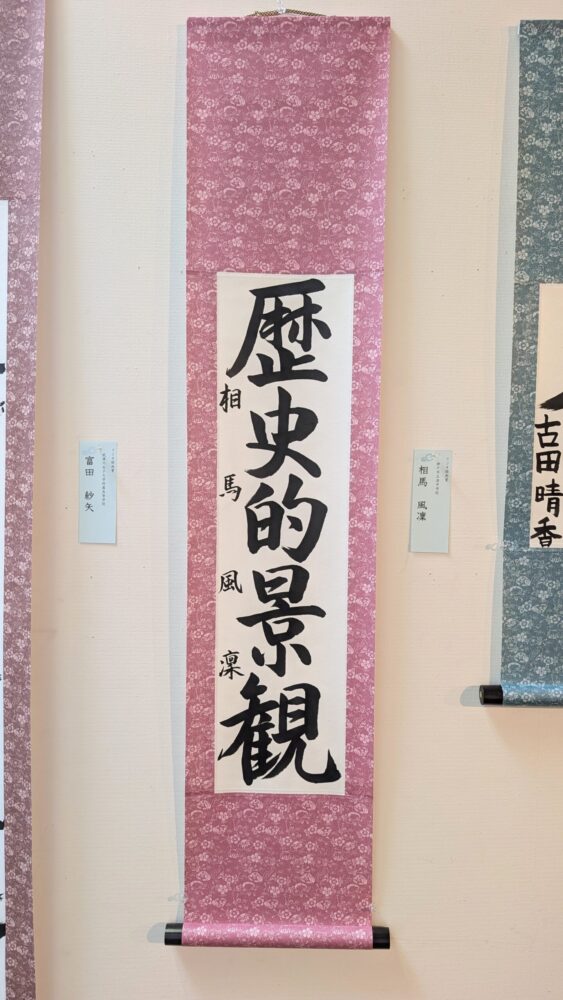 歴史的景観
相馬風凜
相馬 風凜
富田 紗矢
古田晴香